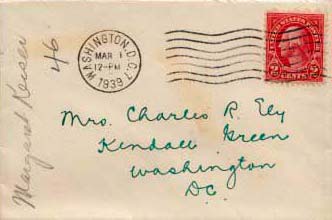 Margaret Keiser
46
WASHINGTON, D.C. 7
MAR 1
12-PM
1939
2 CENTS 2
Mrs. Charles R. Ely
Kendall Green
Washington
D.C.